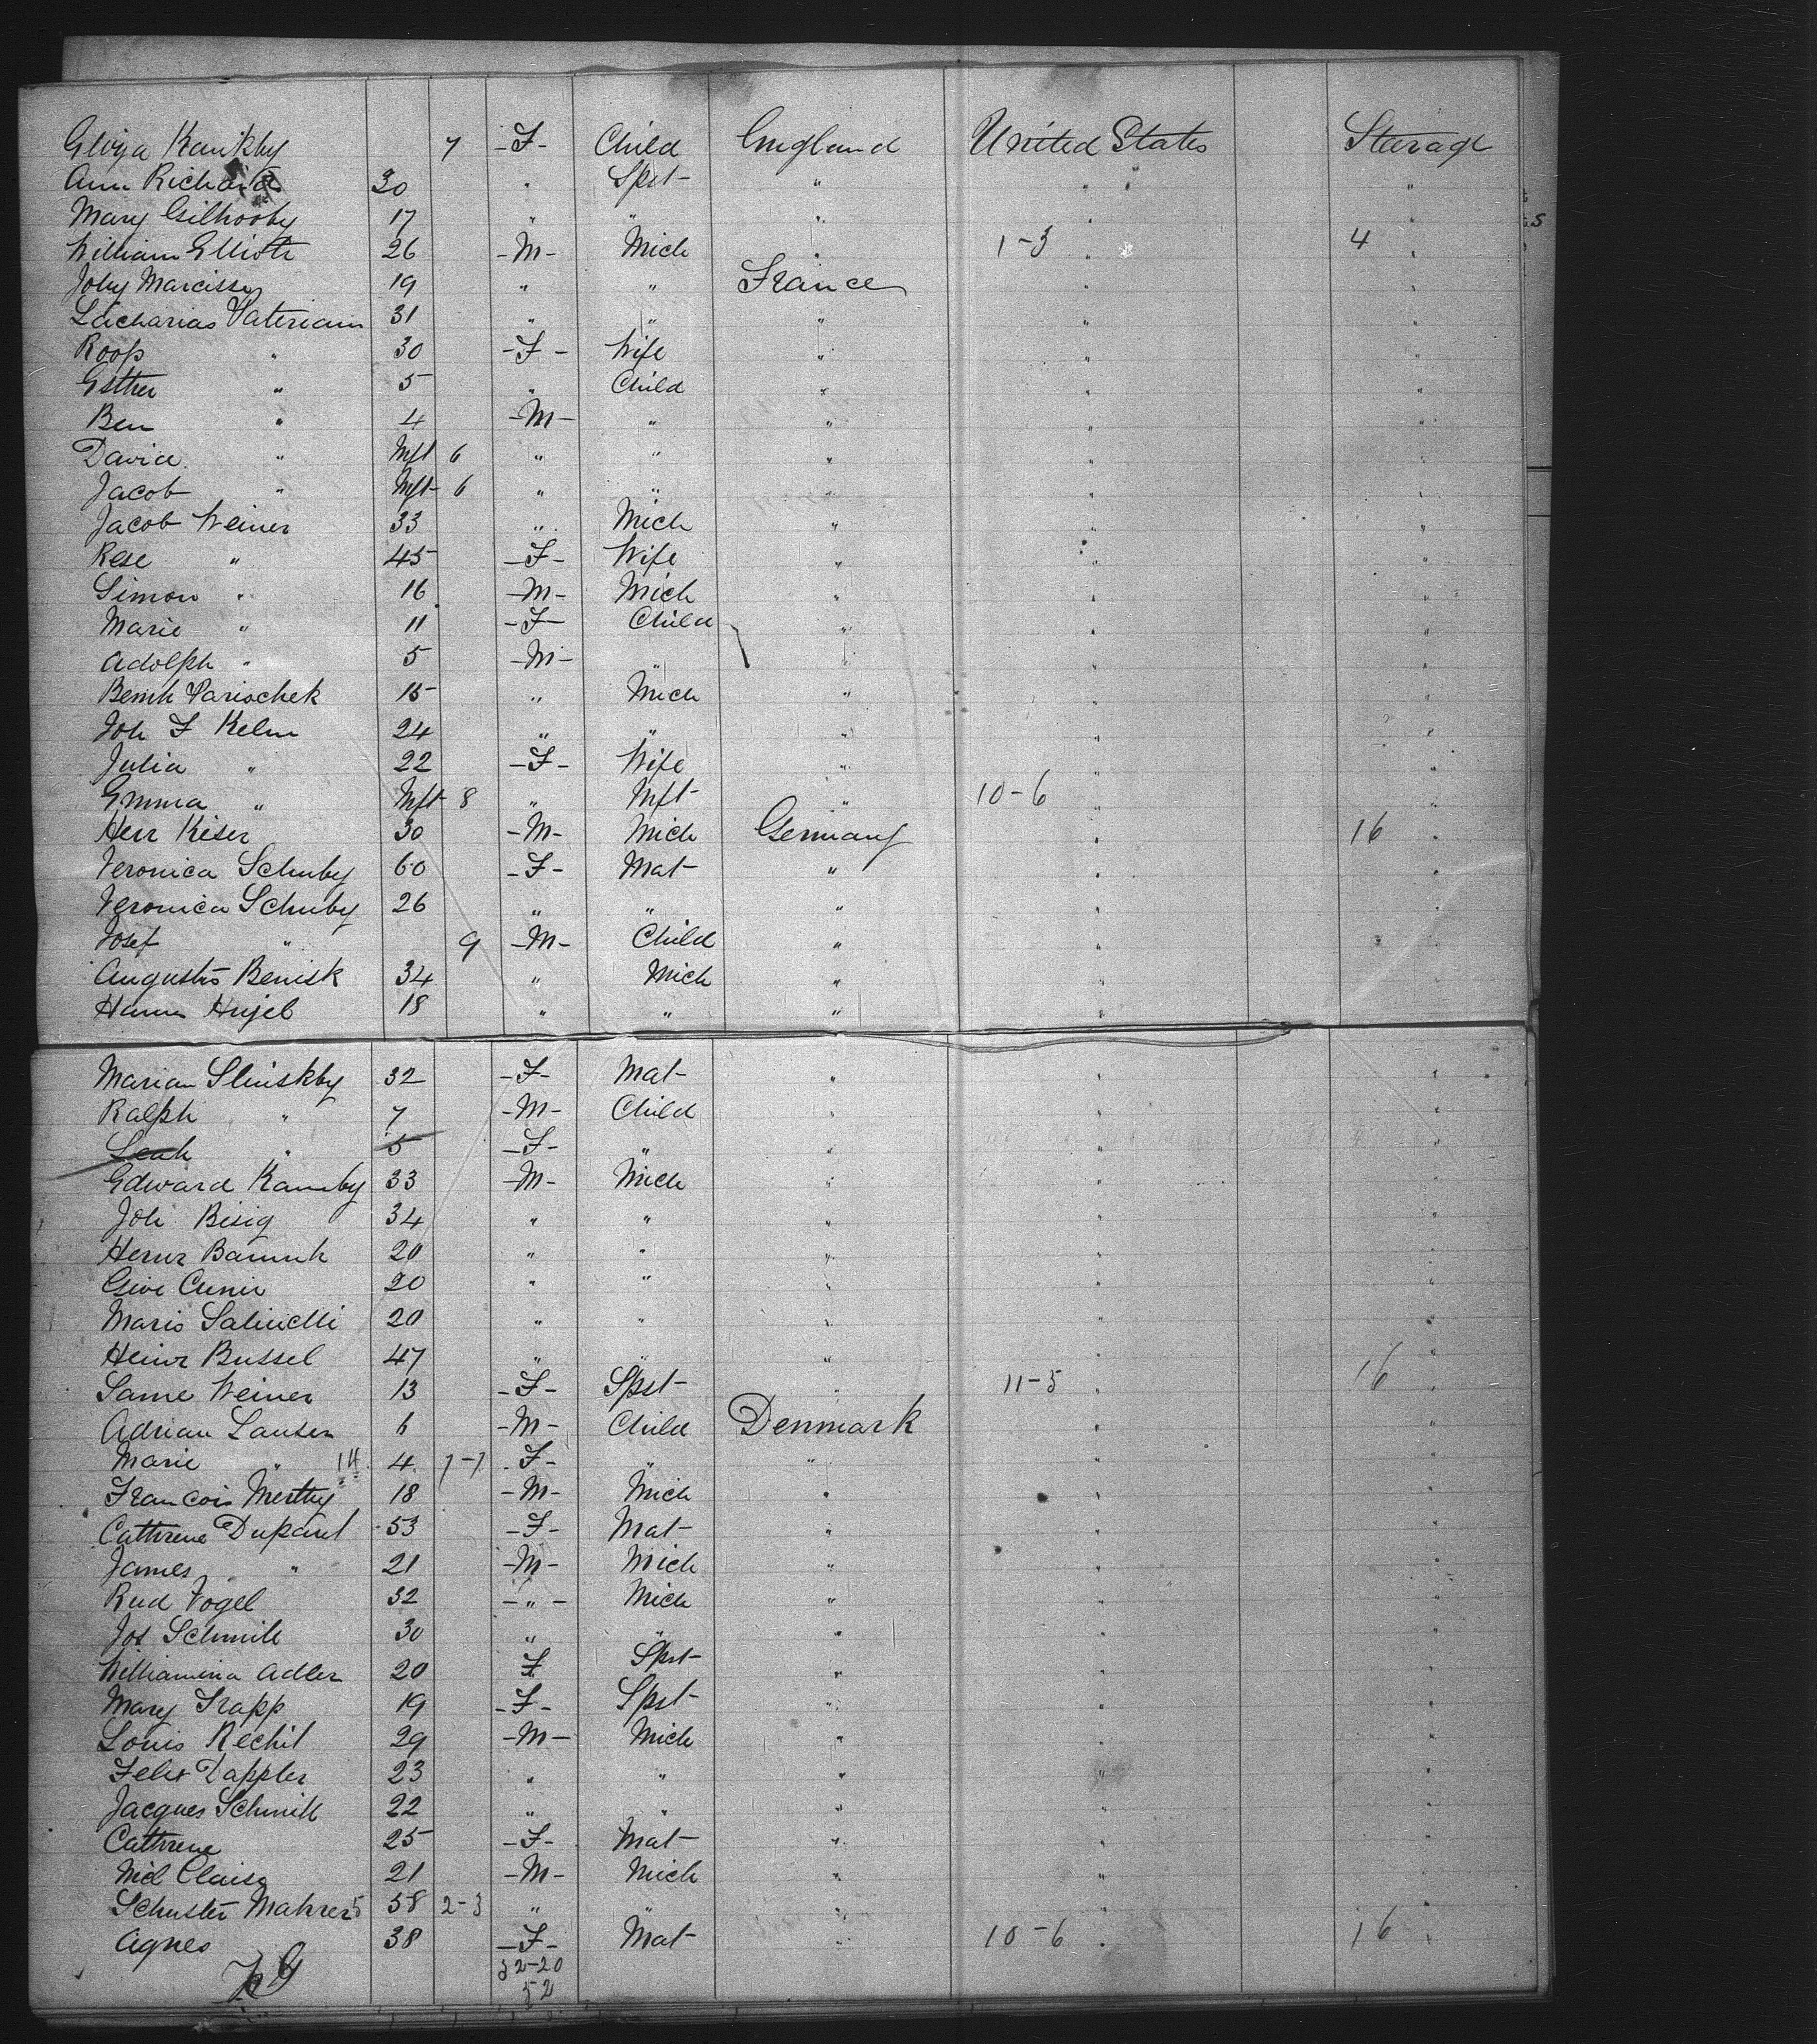 Kaukby 7 -F- Child England United States Sterage
Ann Richard 30 " Spst- " " "
Mary Gilhooby 17 " " " " "
William Elliott 26 -M- Mich " 1-3 " 4 "
Joby Marcisse 19 " " France " "
Zacharias Vateriam 31 " " " " "
Roop " 30 -F- Wife " " "
Esther " 5 " Child " " "
Ben " 4 -M- " " " "
David " Inft 6 " " " " "
Jacob " Inft- 6 " " " " "
Jacob Weiner 33 " Mich " " "
Rese " 45 -F- Wife " " "
Simon " 16 -M- Mich " " "
Marie " 11 -F- Child " " "
Adolph " 5 -M- " " " "
Varischek 15 " Mich " " "
Joh F Kelm 24 " " " " "
Julia " 22 -F- Wife " " "
Emma " Inft- 8 " Inft- " 10-6 " "
Herr Kiser 30 -M- Mich Germany " 16 "
Veronica Schuby 60 -F- Mat- " " "
Veronica Schuby 26 " " " " "
Josef " 9 -M- Child " " "
Augusto Benisk 34 " Mich " " "
Hann Hujeb 18 " " " " "
Marian Slinskby 32 -F- Mat- " " "
Ralph " 7 -M- Child " " "
Leah " 5 -F- " " " "
Edward Kamby 33 -M- Mich " " "
Joh Bisig 34 " " " " "
20 " " " " "
Cunir 20 " " " " "
Maris Salinelli 20 " " " " "
Heinr Bussel 47 " " " " "
Same Weiner 13 -F- Spst- " 11-5 " 16 "
Adrian Lausen 6 -M- Child Denmark " "
Marie " 14 4 1-1 F- " " " "
Francois Merthy 18 -M- Mich " " "
Cathrene Dupant 53 -F- Mat- " " "
James " 21 -M- Mich " " "
Rud Vogel 32 -"- Mich " " "
Jos Schmitt 30 " " " " "
Williamina Adler 20 F Spst- " " "
Mary Trapp 19 -F- Spst- " " "
Louis Rechit 29 -M- Mich " " "
Felix Dappler 23 " " " " "
Jacques Schmitt 22 " " " " "
Cathrene 25 -F- Mat- " " "
Claise 21 -M- Mich " " "
Schuster Mahrer 5 58 2-3 " " " " "
Agnes 38 -F- Mat- " 10-6 " 16 "
32-20
52